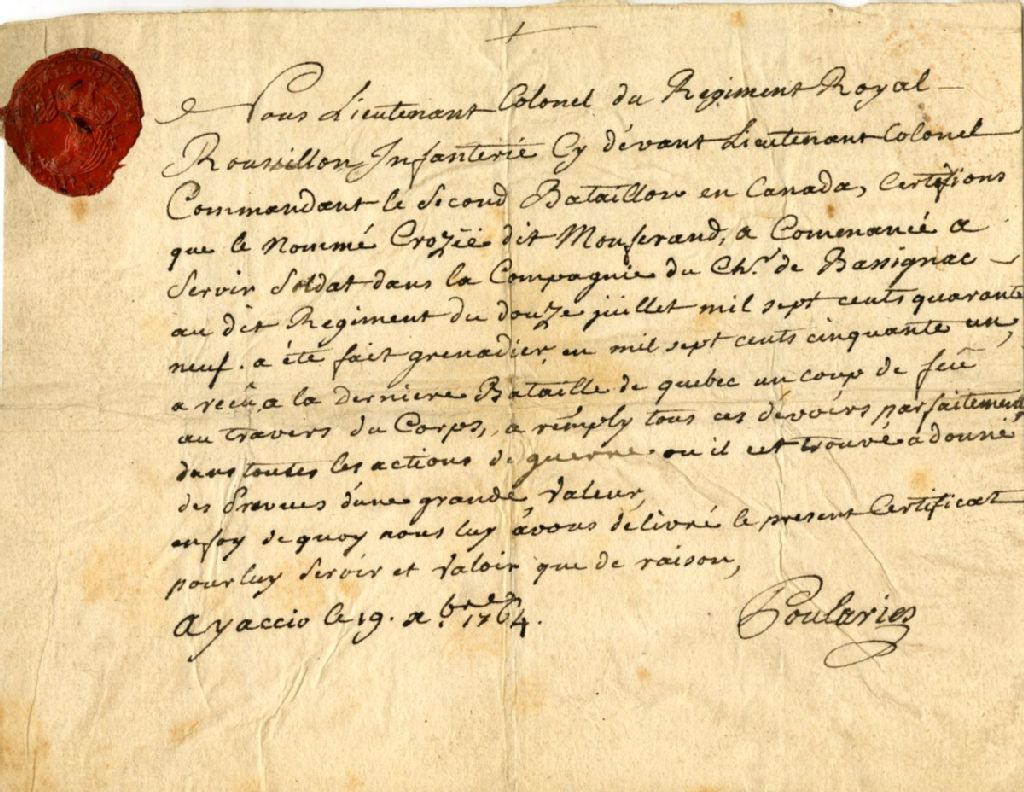 Nous Lieutenant Colonel du Regiment Royal
Roussillon Infanterie Cy dévant Lieutenant Colonel
Commandant le Second Bataillon en Canada, Certifions
que le Nommé Crozéé dit Monferand, a Commancé a
Servir Soldat dans la Compagnie du Ch.r de Bassignac
au dit Regiment du douze juillet mil sept cents quarante
neuf. a été fait grenadier en mil sept cents cinquante un,
a reçû a la derniere Bataille de quebec un coup de feû
au travers du Corps, a rémply tous ces dévoirs parfaitement
dans toutes les actions de guerre ou il cet trouvé a donné
des Preuves d'une grande valeur,
en foy de quoy nous luy avons délivré le present Certificat
pour luy servir et valoir que de raison,
Ayaccio le 19. xbre 1764.
Poularies